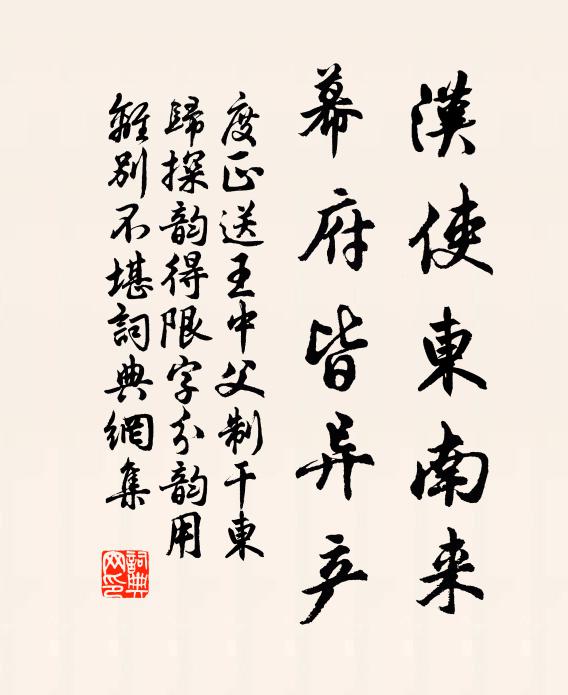 漢使東南来
幕府皆异产
度正送王中父制干東
歸探韵得限字分韵用
離別不堪詞典網集
詞典网印